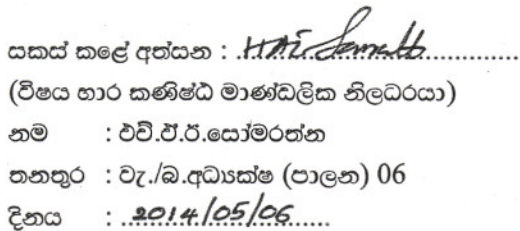 සකස් කළේ අත්සන :
(විෂය භාර කණිෂ්ඨ මාණ්ඩලික නිලධරයා)
නම : එච්.ඒ.ඊ.සෝමරත්න
තනතුර : වැ./බ.අධ්‍යක්ෂ (පාලන) 06
දිනය : 2014/05/06